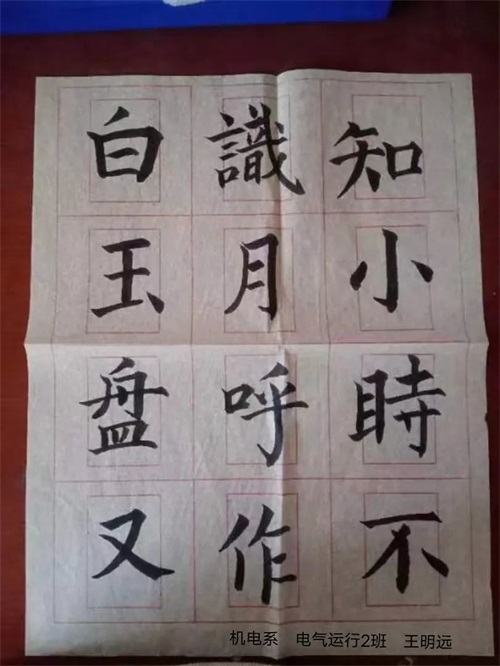 知小時不
識月呼作
白玉盘又
机电系 电气运行2班 王明远